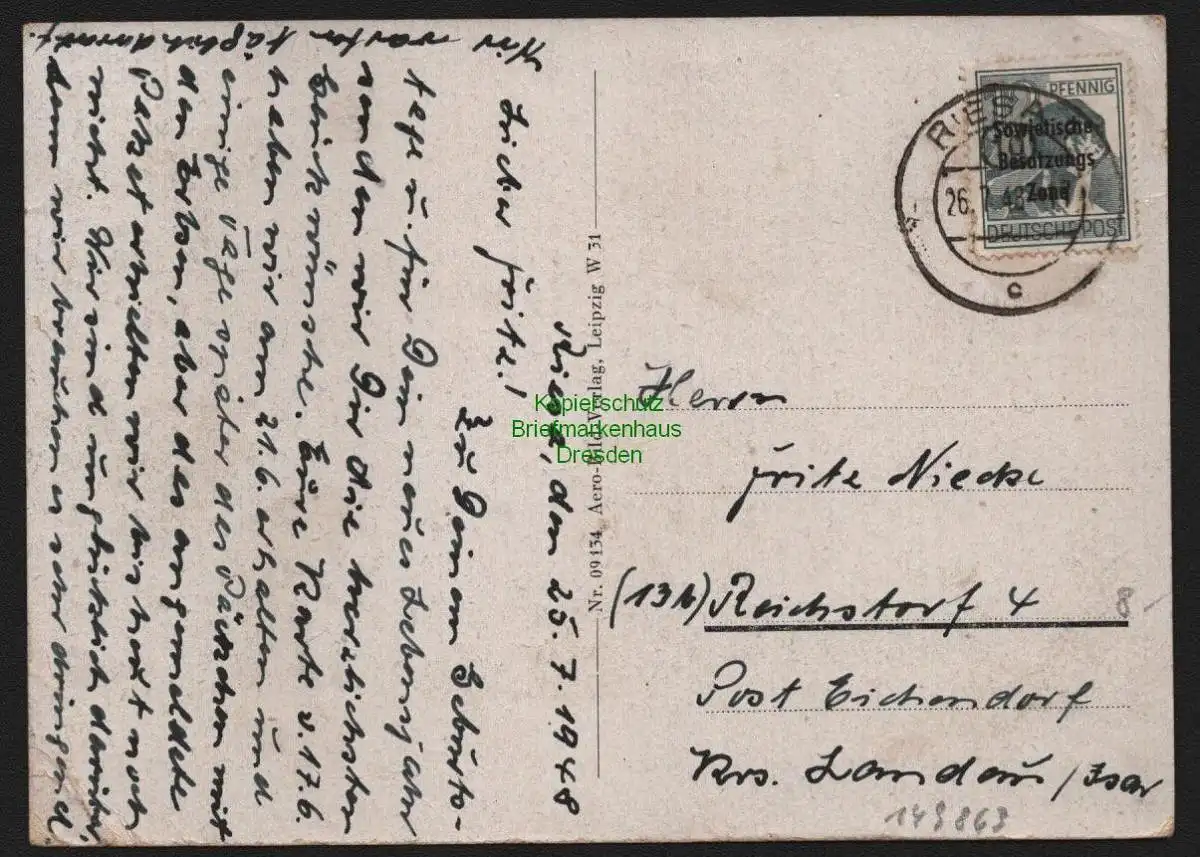 Riesa, den 25.7.1948
Lieber Fritz!
Zu Deinem Geburts-
tage u. für Dein neues Lebensjahr
senden wir Dir die herzlichsten
Glückwünsche. Eure Karte v. 17.6.
haben wir am 21.6. erhalten und
einige Tage später das Päckchen mit
den Erbsen, aber das angemeldete
Paket erhielten wir bis heute noch
nicht. Wir sind unglücklich darüber,
denn wir brauchen es sehr dringend.
Wir warten täglich darauf.
Nr. 09134 Aero-Bild-Verlag, Leipzig W 31
PFENNIG
Sowjetische
Besatzungs
Zone
DEUTSCHE POST
RIESA
26.7.48
c
Herrn
Fritz Niecke
(13b) Reichstorf 4
Post Eichendorf
Krs. Landau/Isar
8-
149863
Kopierschutz
Briefmarkenhaus
Dresden